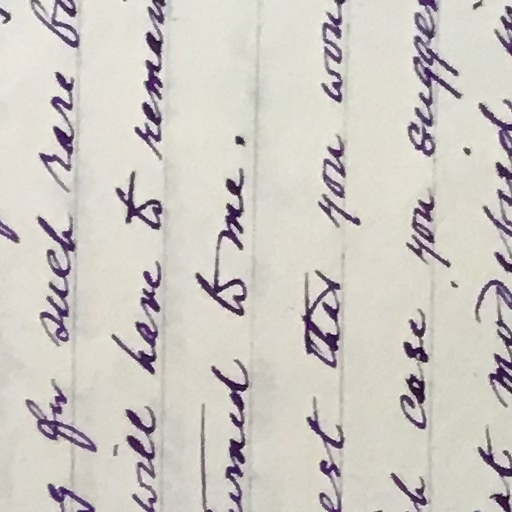 g for such rare bo
will have to remain
urned to me.
est that you wou
ch case you sugges
at modified in